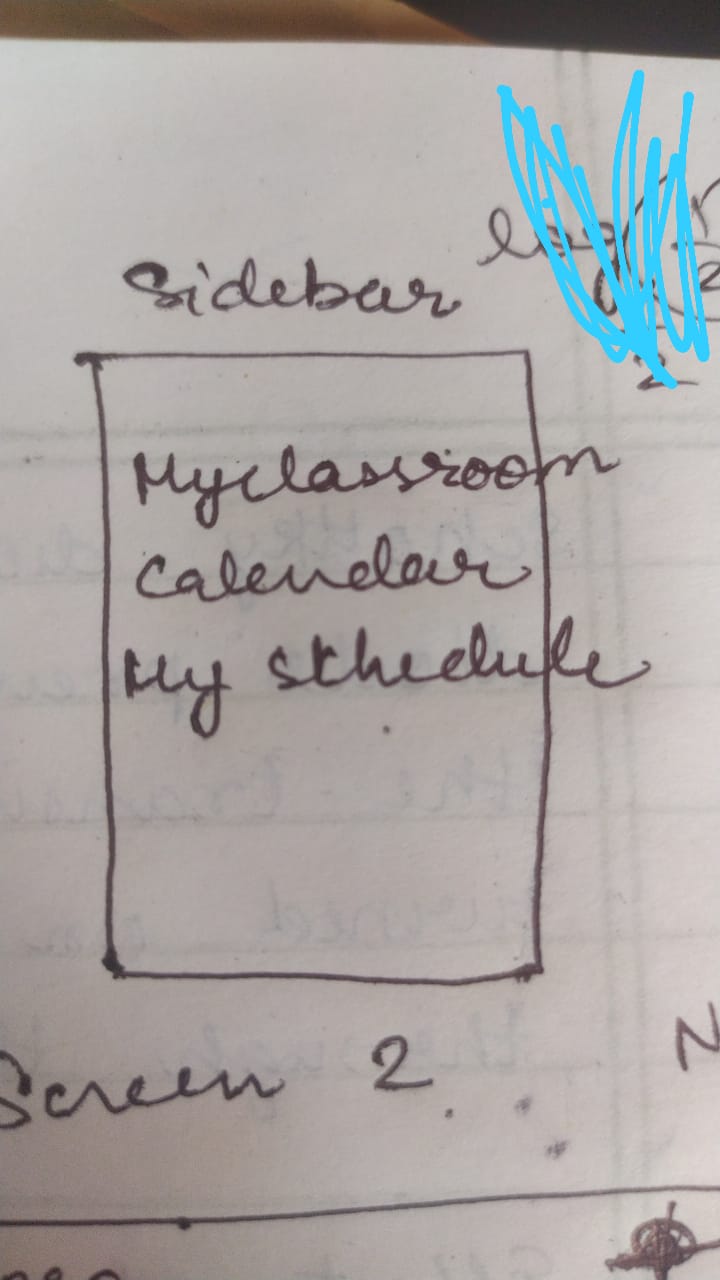 Sidebar
Myclassroom
Calendar
My schedule
Screen 2
N